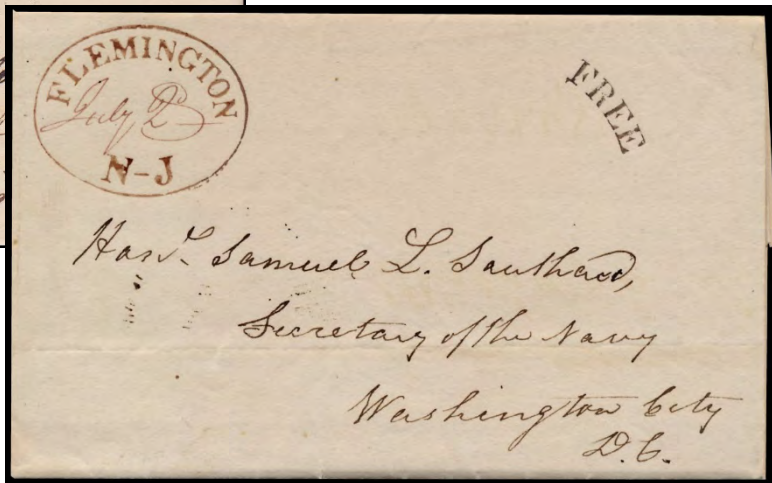 FLEMINGTON
July 2
N-J
FREE
Hon.l Samuel L. Southard,
Secretary of the Navy
Washington City
D.C.